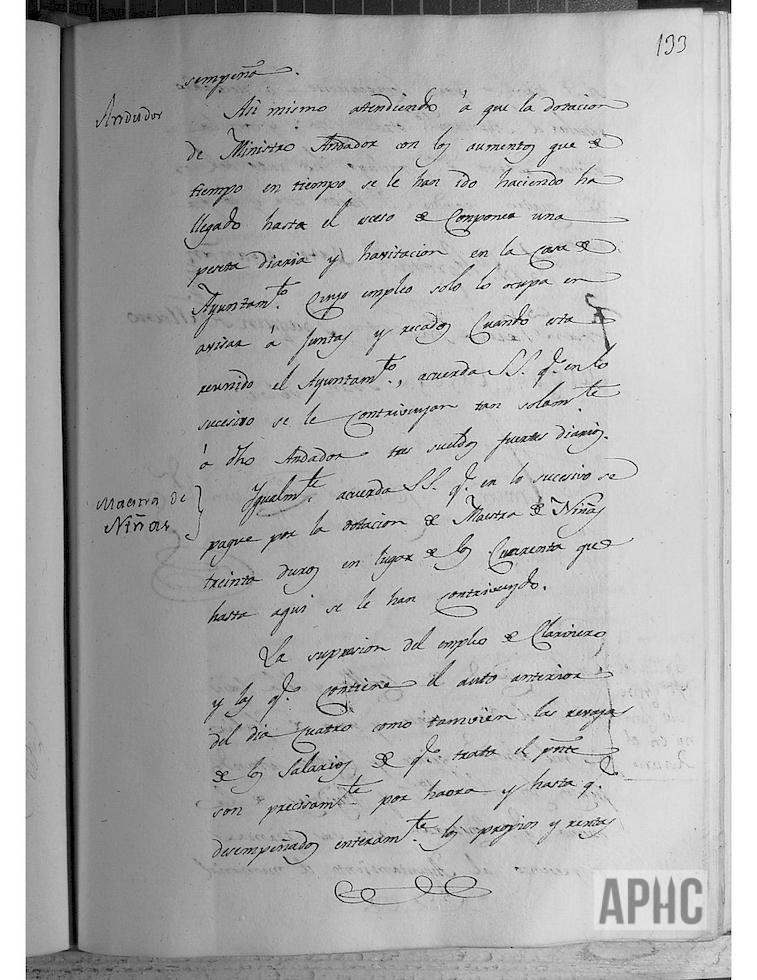 133
sempeño.
Andador
Asi mismo atendiendo á que la dotacion
de Ministro Andador con los aumentos que de
tiempo en tiempo se le han ido haciendo ha
llegado hasta el eceso de Componer una
peseta diaria y havitacion en la Casa de
Ayuntam.to Cuyo empleo solo lo ocupa en
avisar á Juntas y recados Cuando esta
reunido el Ayuntam.to, acuerda SS. q.e en lo
sucesivo se le Contrivuyan tan solam.te
á dho Andador tres sueldos fuertes diarios.
Maestra de
Niñas
Igualm.te acuerda SS. q.e en lo sucesivo se
pague por la dotacion de Maestra de Niñas
treinta duros en lugar de los Cuarenta que
hasta aqui se le han contrivuydo.
La supresion del empleo de Clarinero
y las q.e contiene el auto anterior
del dia Cuatro como tamvien las revajas
de los Salarios de q.e trata el pnte
son precisam.te por haora y hasta q.
desempeñados enteram.te los propios y rentas
APHC